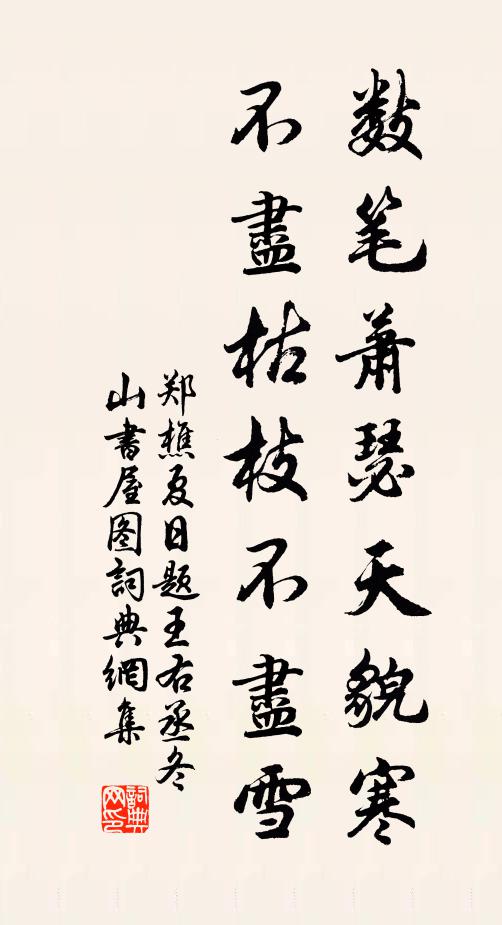 数笔萧瑟天貌寒
不盡枯枝不盡雪
郑樵夏日题王右丞冬
山書屋图詞典網集
詞典网印